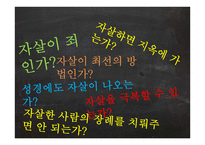 자살하면 지옥에 가
는가?
자살이 죄
인가?
자살이 최선의 방
법인가?
성경에도 자살이 나오는
가?
자살을 극복할 수 있
는가?
자살한 사람의 장례를 치뤄주
면 안 되는가?